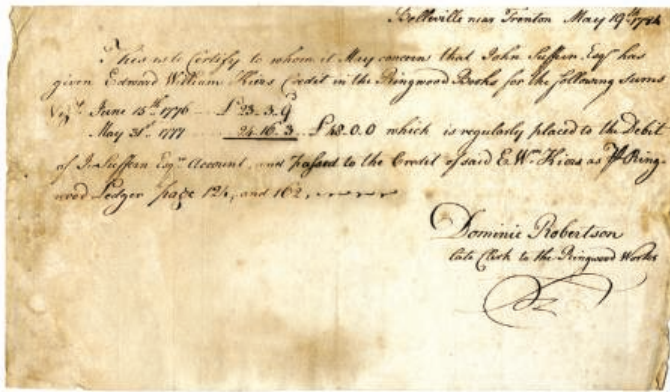 Belleville near Trenton May 19th 1784
This is to Certify to whom it May concern that John Suffern Esqr has
given Edward William Kiers Credit in the Ringwood Books for the following sums
Vizt June 15th 1776 £23.3.9
May 31st 1777 24.16.3 £48.0.0 which is regularly placed to the Debit
of Jn Suffern Esqrs Account, and passed to the Credit of said E Wm Kiers as Pr Ring-
wood Ledger page 124, and 162,
Dominic Robertson
late Clerk to the Ringwood Works